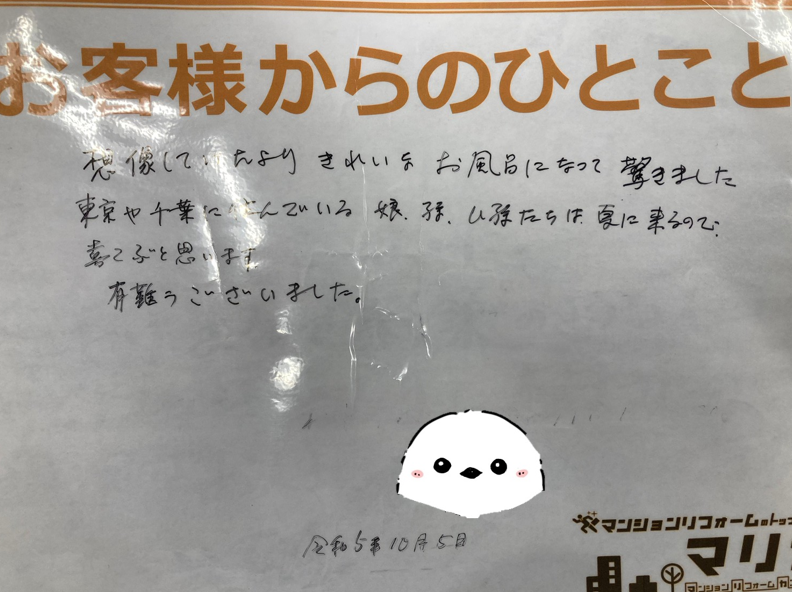 お客様からのひとこと
想像していたより きれいな お風呂になって 驚きました
東京や千葉に住んでいる 娘、孫、ひ孫たちは 夏に来るので、
喜こぶと思います
有難うございました。
令和5年10月5日
マンションリフォームのトップ
マリ
マンションリフォーム